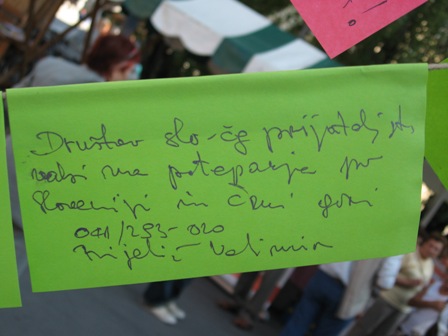 !
Društvo slo-čg prijateljstva
vabi na potepanje po
Sloveniji in Črni gori
041/293-020
Velimir